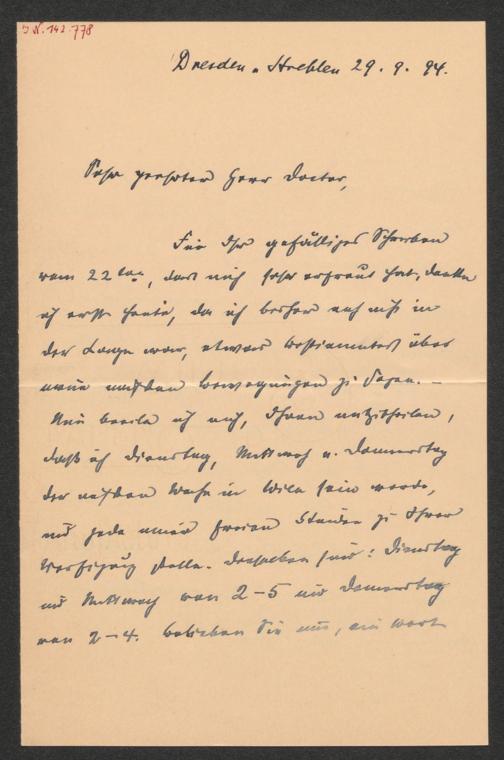 J.N. 142.778
Dresden-Strehlen 29. 9. 94.
Sehr geehrter Herr Doctor,
Für Ihr gefälliges Schreiben
vom 22ten, das mich sehr erfreut hat, danke
ich erst heute, da ich bisher noch nicht in
der Lage war, etwas bestimmtes über
meine nächsten Bewegungen zu sagen. –
Nun beeile ich mich, Ihnen mitzutheilen,
daß ich Dienstag, Mittwoch u. Donnerstag
der nächsten Woche in Wien sein werde,
und jede meiner freien Stunden zu Ihrer
Verfügung stelle. Dieselben sind: Dienstag
und Mittwoch von 2–5 und Donnerstag
von 2–4. Belieben Sie nun, ein Wort